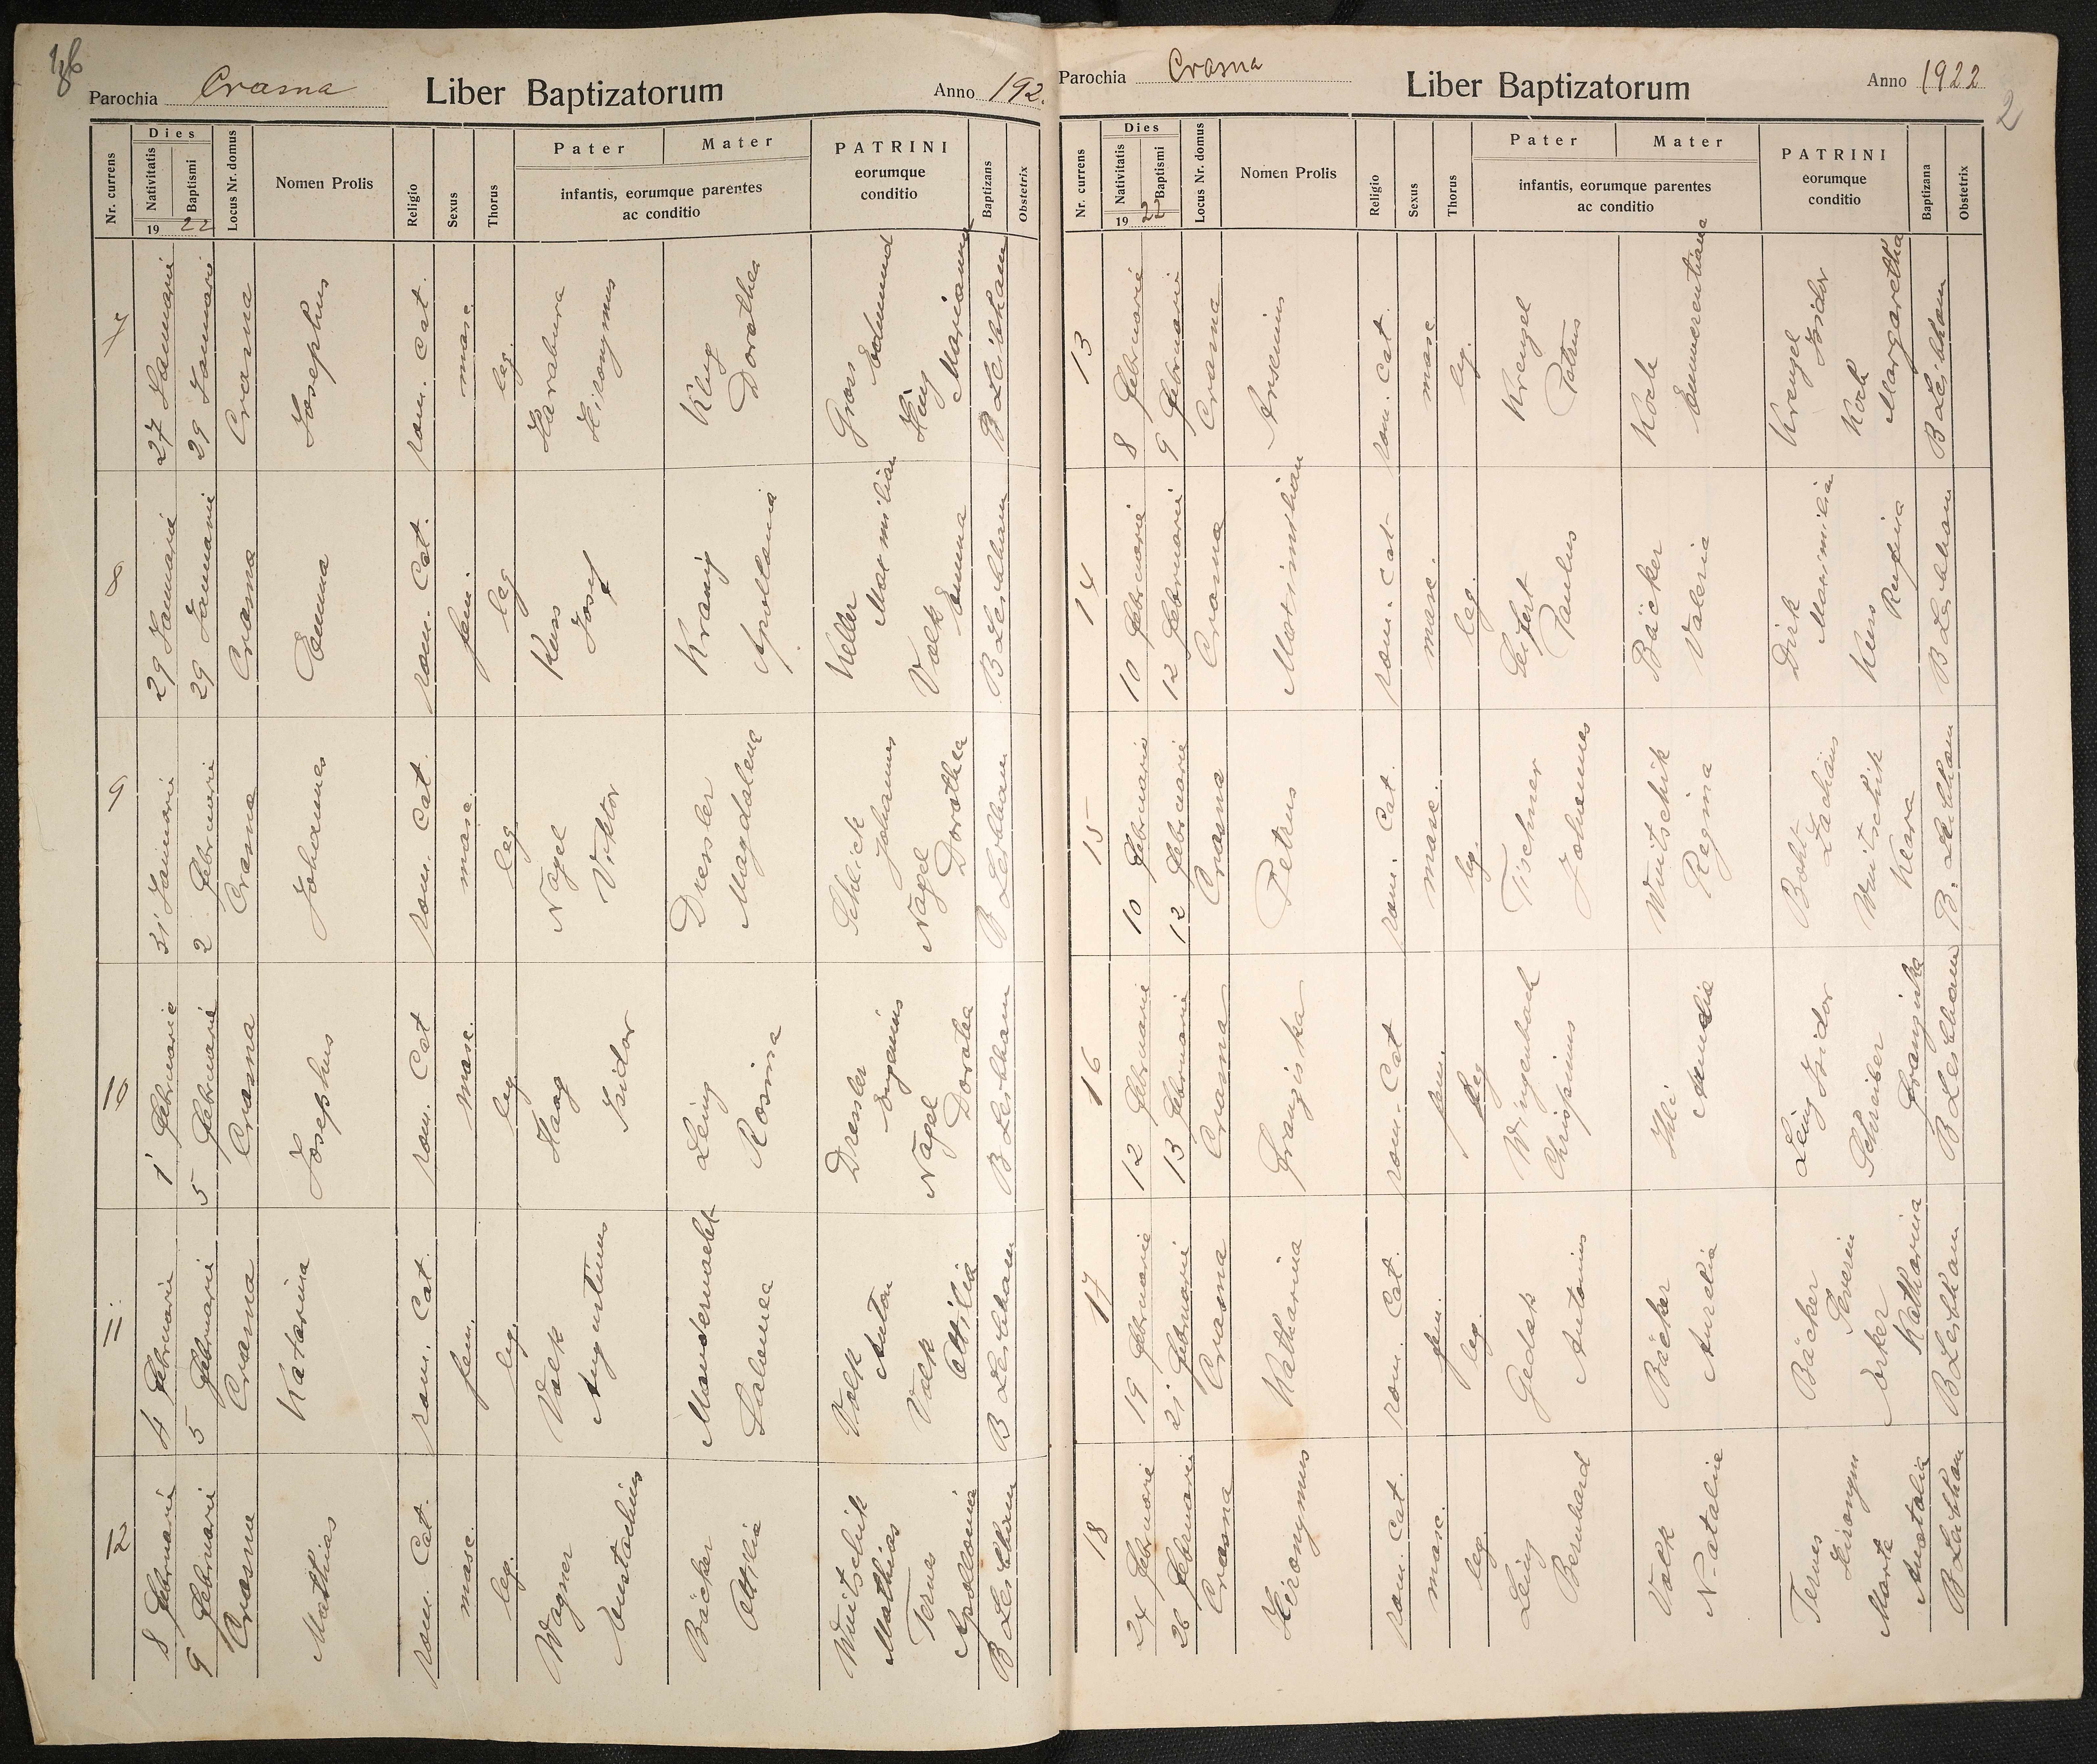 16
Parochia Crasna Liber Baptizatorum Anno 192
Nr. currens
Dies
Nativitatis
Baptismi
19 22
Locus Nr. domus
Nomen Prolis
Religio
Sexus
Thorus
Pater
Mater
infantis, eorumque parentes
ac conditio
PATRINI
eorumque
conditio
Baptizans
Obstetrix
7
27 Januarii
29 Januarii
Crasna
Josephus
rom. Cat.
masc.
leg.
Harabura
Hironymus
Klug
Dorothea
Gross
Edmund
Marianna
B Leibham
8
29 Januarii
29 Januarii
Crasna
Emma
rom. Cat.
fem.
leg
Kuss
Josef
Kranig
Apollonia
Keller
Maximilian
Volk
Emma
B Leibham
9
31 Januarii
2 Februarii
Crasna
Johannes
rom. Cat.
masc.
leg
Nagel
Viktor
Dressler
Magdalena
Schlick
Johannes
Nagel
Dorothea
B Leibham
10
1 Februarii
5 Februarii
Crasna
Josephus
rom. Cat
masc.
leg
Haag
Isidor
Leinz
Rosina
Dressler
Eugenius
Nagel
Dorotea
B Leibham
11
4 Februarii
5 Februarii
Crasna
Katarina
rom. Cat.
fem.
leg.
Volk
Augustinus
Mandernacht
Salomea
Volk
Anton
Volk
Ottilia
B Leibham
12
8 Februarii
9 Februarii
Crasna
Mathias
rom. Cat.
masc.
leg.
Wagner
Eustachius
Bäcker
Ottilia
Wuitschik
Mathias
Ternes
Apollonia
B Leibham
Parochia Crasna Liber Baptizatorum Anno 1922
2
Nr. currens
Dies
Nativitatis
Baptismi
19 22
Locus Nr. domus
Nomen Prolis
Religio
Sexus
Thorus
Pater
Mater
infantis, eorumque parentes
ac conditio
PATRINI
eorumque
conditio
Baptizana
Obstetrix
13
8 Februarii
9 Februarii
Crasna
Arsenius
rom. Cat.
masc
leg.
Krenzel
Petrus
Koch
Emmerentiana
Krenzel
Isidor
Koch
Margaretha
B Leibham
14
10 Februarii
12 Februarii
Crasna
Maximilian
rom. Cat
masc.
leg.
Seifert
Paulus
Bäcker
Valeria
Dirk
Maximilian
Kuss
Rufina
B Leibham
15
10 Februarii
12 Februarii
Crasna
Petrus
rom. Cat
masc.
leg.
Tischner
Johannes
Wuitschik
Regina
Bokt
Zachäus
Wuitschik
Klara
B. Leibham
16
12 Februarii
13 Februarii
Crasna
Franziska
rom. Cat
fem.
leg
Wingenbach
Chrispinus
Ihli
Amalia
Leinz Isidor
Schreiber
Franziska
B Leibham
17
19 Februarii
21 Februarii
Crasna
Katharina
rom. Cat.
fem.
leg.
Gedak
Antonius
Bäcker
Aurelia
Bäcker
Severin
Erker
Katharina
B Leibham
18
24 Februarii
26 Februarii
Crasna
Hironymus
rom. Cat.
masc.
leg.
Leinz
Bernhard
Volk
Natalie
Ternes
Hironym
Marte
Anatalia
B Leibham